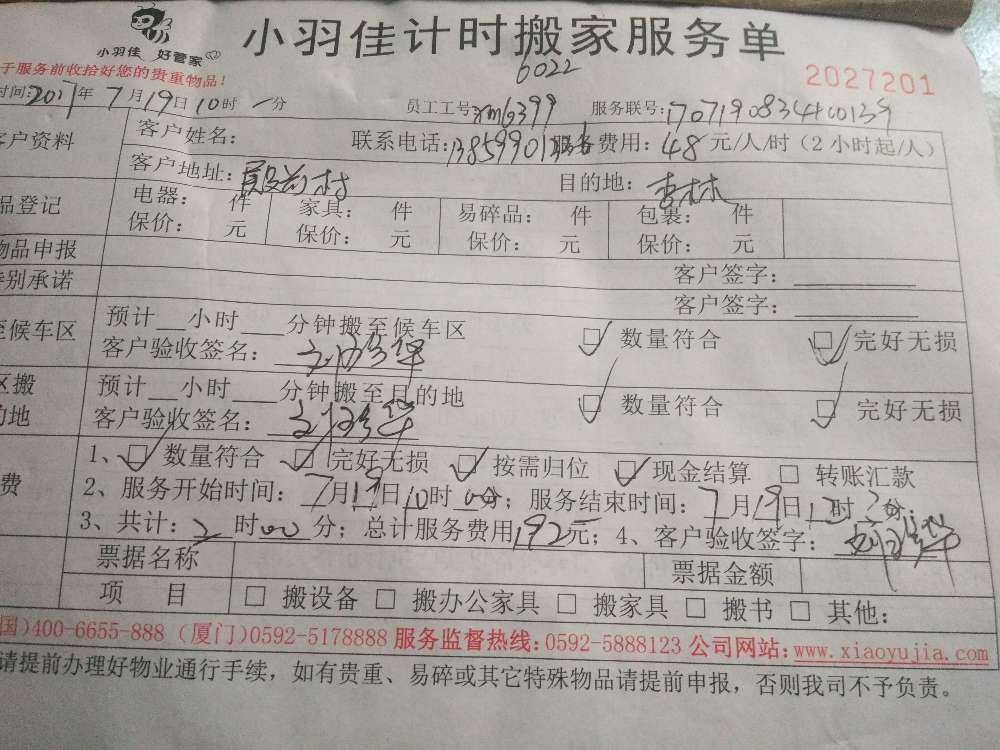 小羽佳 好管家
小羽佳计时搬家服务单
6022
于服务前收拾好您的贵重物品!
2027201
时间:2017年7月19日10时 分 员工工号:xm6399 服务联号:
客户资料 客户姓名: 联系电话: 服务费用:48元/人/时(2小时起/人)
客户地址: 殿前村 目的地: 杏林
品登记 电器: 件 家具: 件 易碎品: 件 包裹: 件
保价: 元 保价: 元 保价: 元 保价: 元
物品申报 客户签字:
特别承诺 客户签字:
至候车区 预计__小时___分钟搬至候车区 ☑ 数量符合 ☑ 完好无损
客户验收签名:
区搬 预计__小时___分钟搬至目的地 ☑ 数量符合 ☑ 完好无损
的地 客户验收签名:
费 1、☑ 数量符合 ☑ 完好无损 ☑ 按需归位 ☑ 现金结算 □ 转账汇款
2、服务开始时间:7月19日10时00分;服务结束时间:7月19日 时 分;
3、共计:2时00分;总计服务费用192元;4、客户验收签字:
票据名称 票据金额
项 目 □ 搬设备 □ 搬办公家具 □ 搬家具 □ 搬书 □ 其他:
国)400-6655-888 (厦门)0592-5178888 服务监督热线:0592-5888123 公司网站:www.xiaoyujia.com
请提前办理好物业通行手续，如有贵重、易碎或其它特殊物品请提前申报，否则我司不予负责。